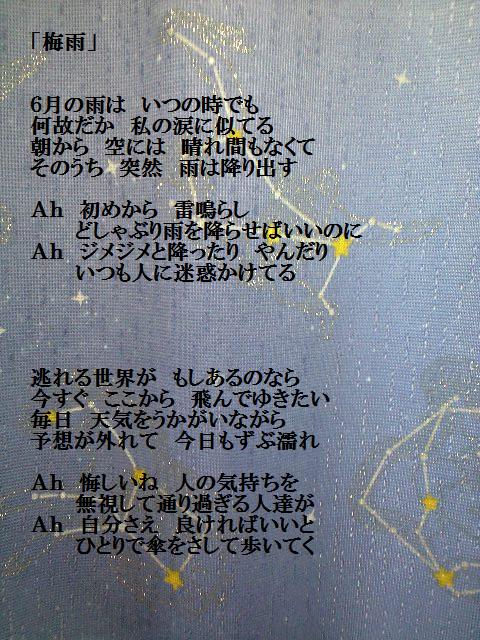 「梅雨」
6月の雨は　いつの時でも
何故だか　私の涙に似てる
朝から　空には　晴れ間もなくて
そのうち　突然　雨は降り出す
Ah　初めから　雷鳴らし
どしゃぶり雨を降らせばいいのに
Ah　ジメジメと降ったり　やんだり
いつも人に迷惑かけてる
逃れる世界が　もしあるのなら
今すぐ　ここから　飛んでゆきたい
毎日　天気をうかがいながら
予想が外れて　今日もずぶ濡れ
Ah　悔しいね　人の気持ちを
無視して通り過ぎる人達が
Ah　自分さえ　良ければいいと
ひとりで傘をさして歩いてく